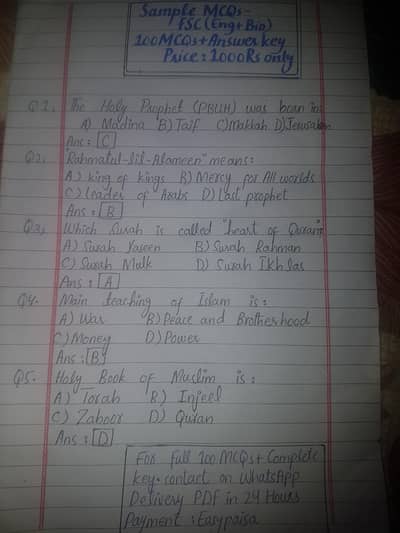 Sample MCQs-
FSC (Eng+Bio)
100 MCQs+Answer key
Price: 1000Rs only
Q1. The Holy Prophet (PBUH) was born in:
A) Madina B) Taif C) Makkah D) Jerusalem
Ans: C
Q2. "Rahmatul-lil-Alameen" means:
A.) King of kings B) Mercy for All worlds
C) Leader of Arabs D) Last prophet
Ans: B
Q3, Which Surah is called "heart of Quran"?
A) Surah Yaseen B) Surah Rahman
C) Surah Mulk D) Surah Ikhlas
Ans: A
Q4. Main teaching of Islam is:
A) War B) Peace and Brotherhood
C) Money D) Power
Ans: B
Q5. Holy Book of Muslim is:
A) Torah B) Injeel
C) Zaboor D) Quran
Ans: D
For Full 100 MCQs+Complete
key.contact on WhatsApp
Delivery PDF in 24 Hours
Payment: Easypaisa